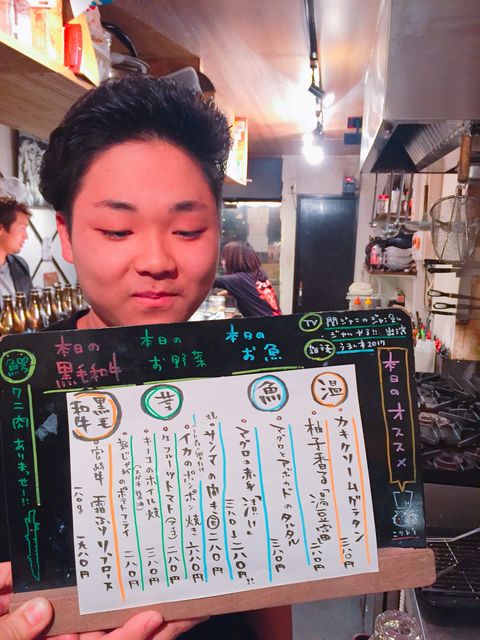 TV 関ジャニのジャニ勉
ジャルやる!! 出演
雑誌 うまい本2017
本日のオススメ
本日の
お魚
本日の
お野菜
本日の
黒毛和牛
鰐
ワニ肉 ありまっせー!!
温
カキクリームグラタン
三八〇円
柚子香る湯豆腐
三八〇円
魚
マグロとアボカドのタルタル
三八〇円
マグロ赤身 造り
サンマの開き
二八〇円
イカのポンポン焼き
二八〇円
菜
フルーツトマト
二八〇円
キノコのホイル焼
三八〇円
新じゃがのポテトフライ
二八〇円
黒毛
和牛
宮崎牛 霜ふりリブロース
一八〇g 一九八〇円